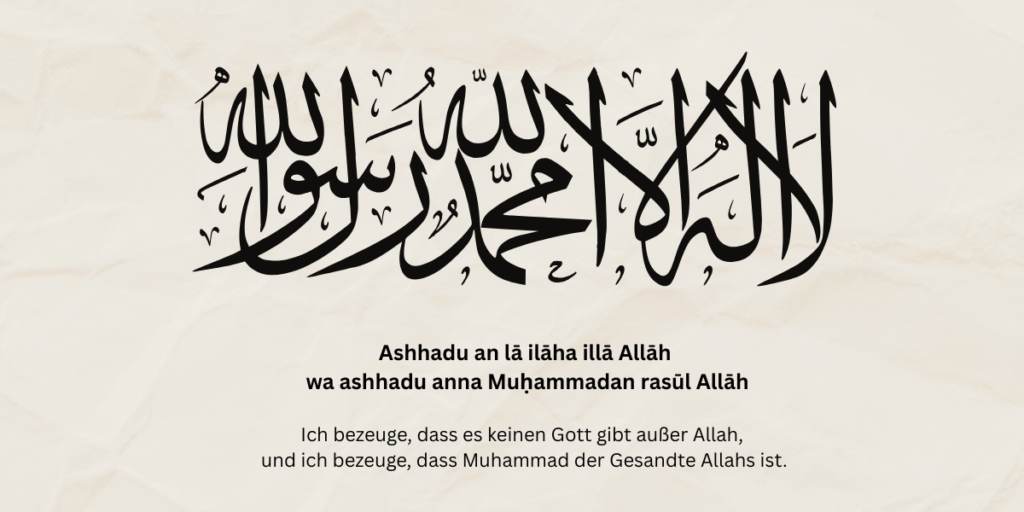 لا إله إلا الله محمد رسول الله
Ashhadu an lā ilāha illā Allāh
wa ashhadu anna Muḥammadan rasūl Allāh
Ich bezeuge, dass es keinen Gott gibt außer Allah,
und ich bezeuge, dass Muhammad der Gesandte Allahs ist.